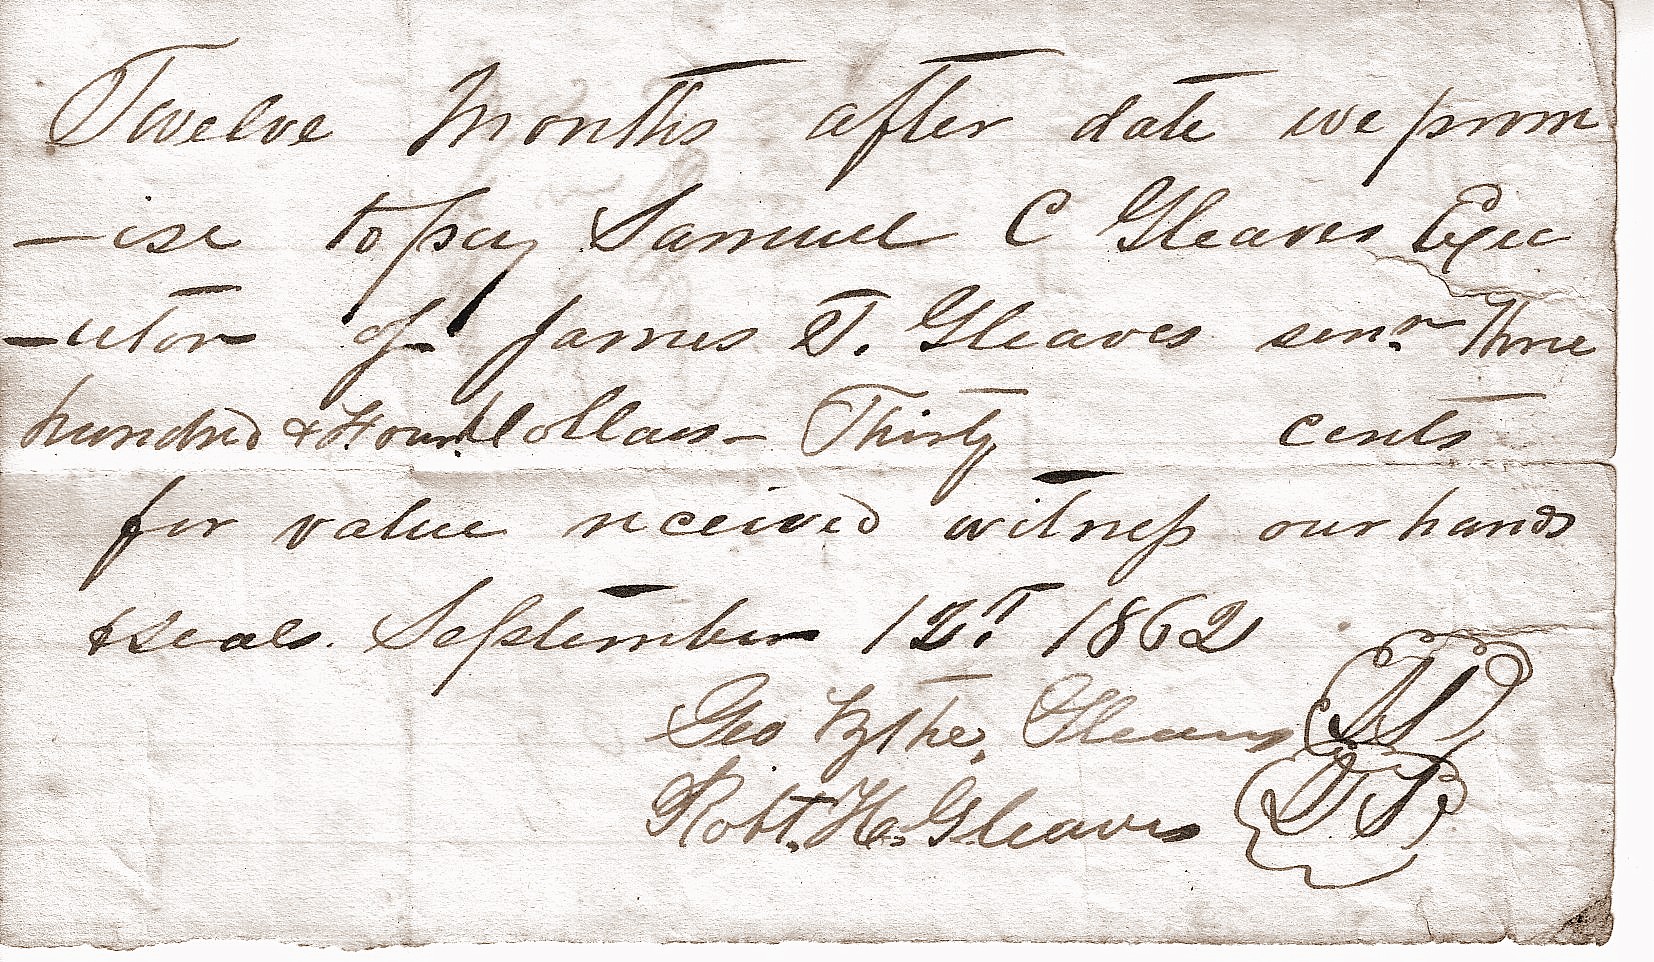 Twelve Months after date we prom
-ise to pay Samuel C Gleaves Exec
-utor of James T. Gleaves senr. Three
hundred & Four Dollars - Thirty cents
for value received witness our hands
& seals. September 12T. 1862
Geo Wythe Gleaves
Robt. H. Gleaves